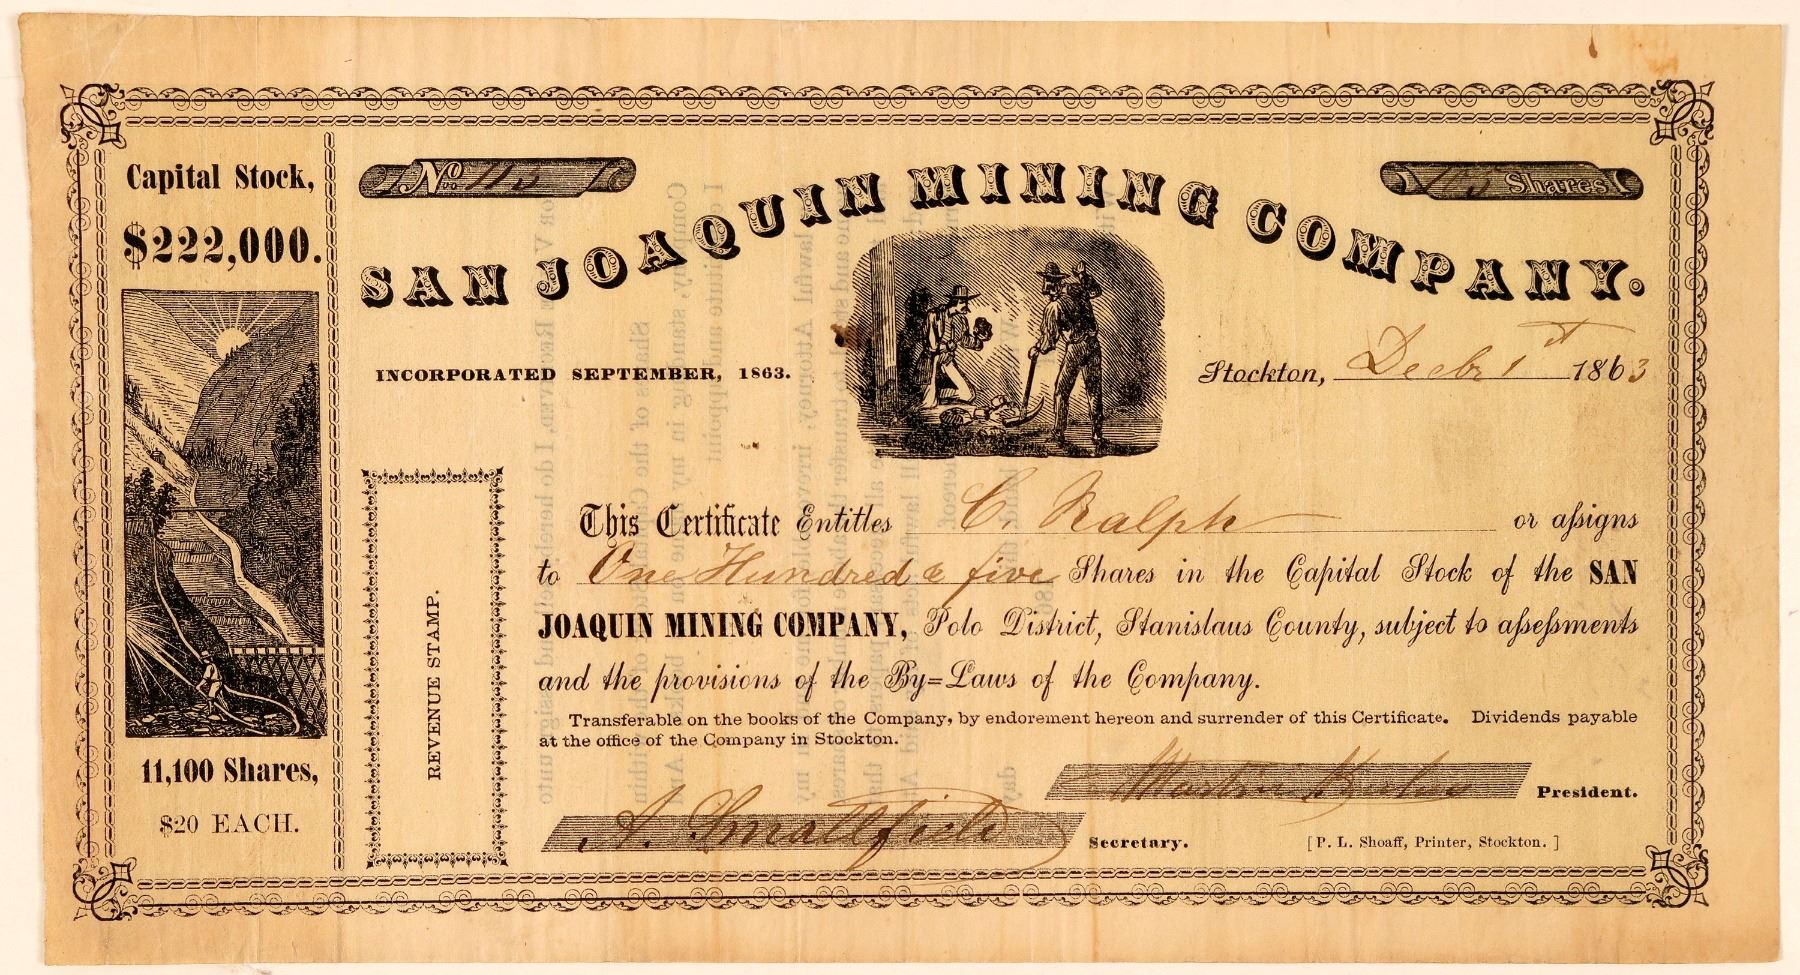 Capital Stock,
$222,000.
11,100 Shares,
$20 EACH.
No. 113
105 Shares
SAN JOAQUIN MINING COMPANY.
INCORPORATED SEPTEMBER, 1863.
Stockton, Decbr 1st 1863
REVENUE STAMP.
This Certificate Entitles C. Ralph or aſsigns
to One Hundred & five Shares in the Capital Stock of the SAN
JOAQUIN MINING COMPANY, Polo District, Stanislaus County, subject to aſseſsments
and the provisions of the By=Laws of the Company.
Transferable on the books of the Company, by endorement hereon and surrender of this Certificate. Dividends payable
at the office of the Company in Stockton.
Martin President.
A. Smallfield Secretary.
[P. L. Shoaff, Printer, Stockton.]